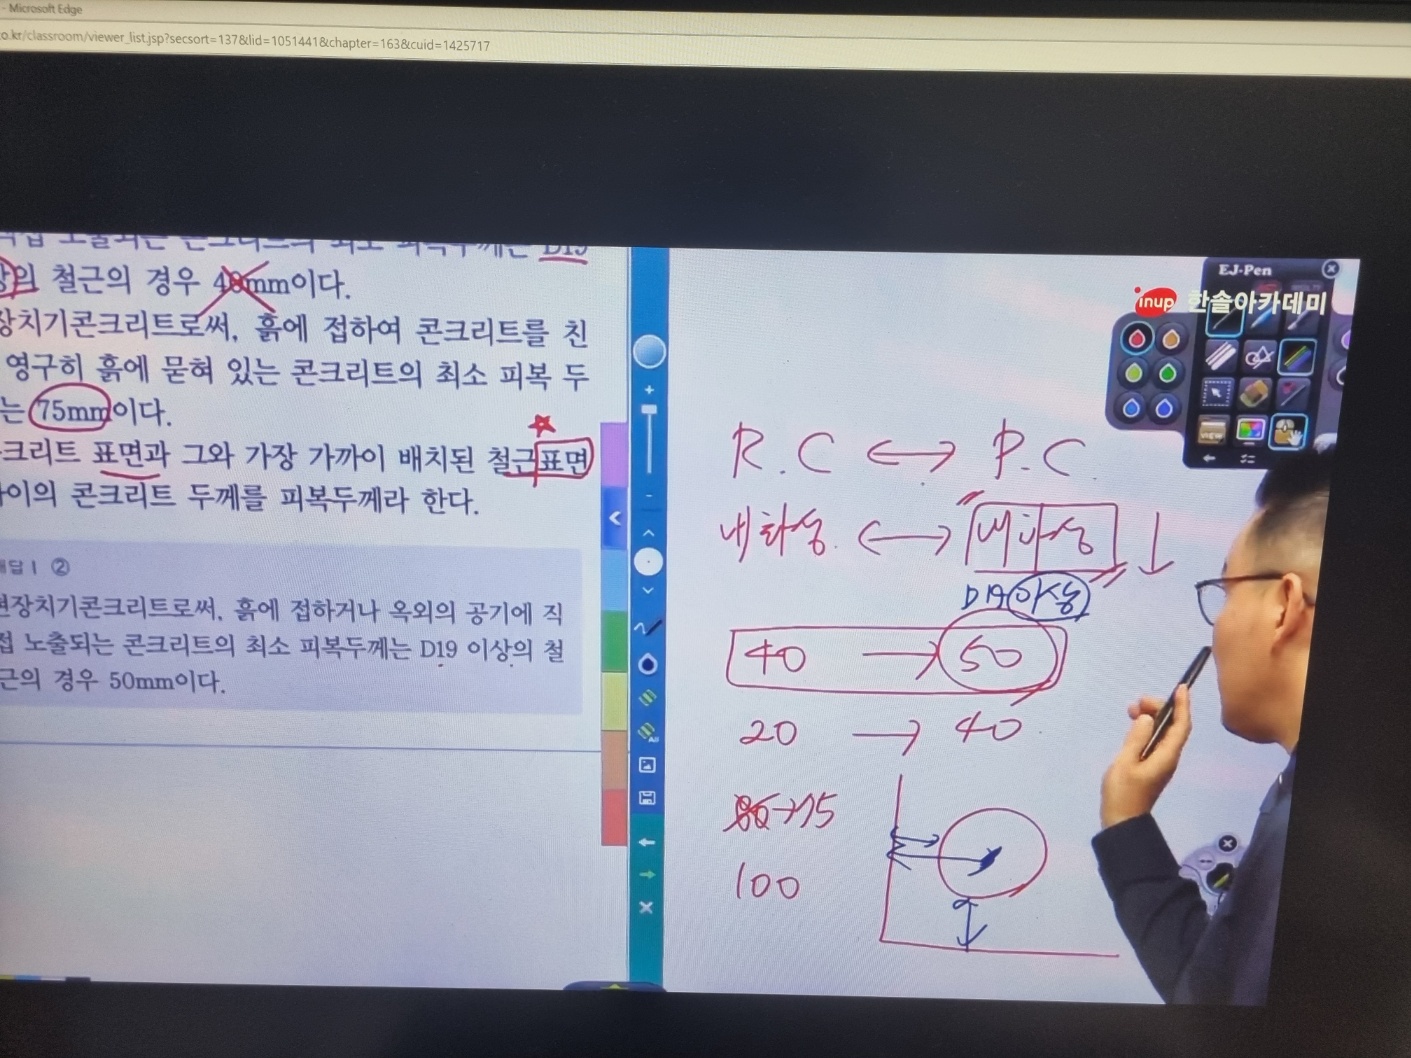 - Microsoft Edge
o.kr/classroom/viewer_list.jsp?secsort=137&lid=1051441&chapter=163&cuid=1425717
직접 노출되는 콘크리트의 최소 피복두께는 D19
상의 철근의 경우 40mm이다.
장치기콘크리트로써, 흙에 접하여 콘크리트를 친
영구히 흙에 묻혀 있는 콘크리트의 최소 피복 두
는 75mm이다.
크리트 표면과 그와 가장 가까이 배치된 철근표면
사이의 콘크리트 두께를 피복두께라 한다.
해답 1 ②
현장치기콘크리트로써, 흙에 접하거나 옥외의 공기에 직
접 노출되는 콘크리트의 최소 피복두께는 D19 이상의 철
근의 경우 50mm이다.
EJ-Pen
inup 한솔아카데미
VIEW
All
R.C ↔ P.C
내화성 ↔
D19 이상
40 → 50
20 → 40
80 → 75
100